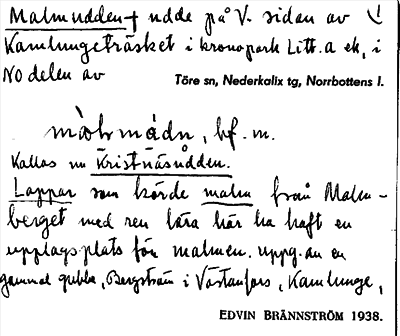 Malmudden + udde på V. sidan av
Kamlungeträsket i kronopark Litt. a ek, i
NO delen av
Töre sn, Nederkalix tg, Norrbottens l.
bf. m.
Kallas nu Kristnäsudden.
Lappar som körde malm från Malm-
berget med ren lära här ha haft en
upplagsplats för malmen. uppg. av en
gammal gubbe, Bergström i Västanfors, Kamlunge,
EDVIN BRÄNNSTRÖM 1938.